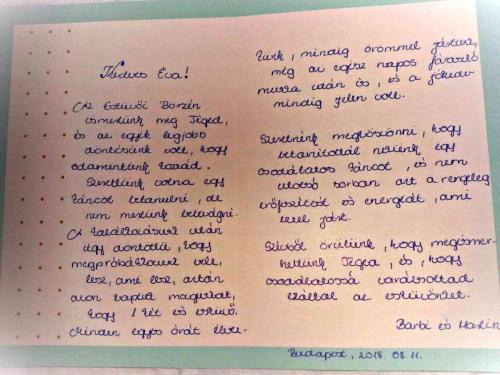 Kedves Éva!
Az Esküvői Börzén
ismertünk meg Téged,
és az egyik legjobb
döntésünk volt, hogy
odamentünk Hozzád.
Szerettünk volna egy
táncot betanulni, de
nem mertünk belevágni.
A találkozásunk után
úgy döntöttünk, hogy
megpróbálkozunk vele,
lesz, ami lesz, aztán
azon kaptuk magunkat,
hogy 1 hét és esküvő.
Minden egyes órát élvez-
tünk, mindig örömmel jöttünk,
még az egész napos fárasztó
munka után is, és a jókedv
mindig jelen volt.
Szeretnénk megköszönni, hogy
betanítottál nekünk egy
csodálatos táncot, és nem
utolsó sorban azt a rengeteg
erőfeszítést és energiát, ami
ezzel járt.
Szívből örülünk, hogy megismer-
hettünk Téged, és, hogy
csodálatossá varázsoltad
ezáltal az esküvőnket.
Barbi és Martin
Budapest, 2018. 08. 11.